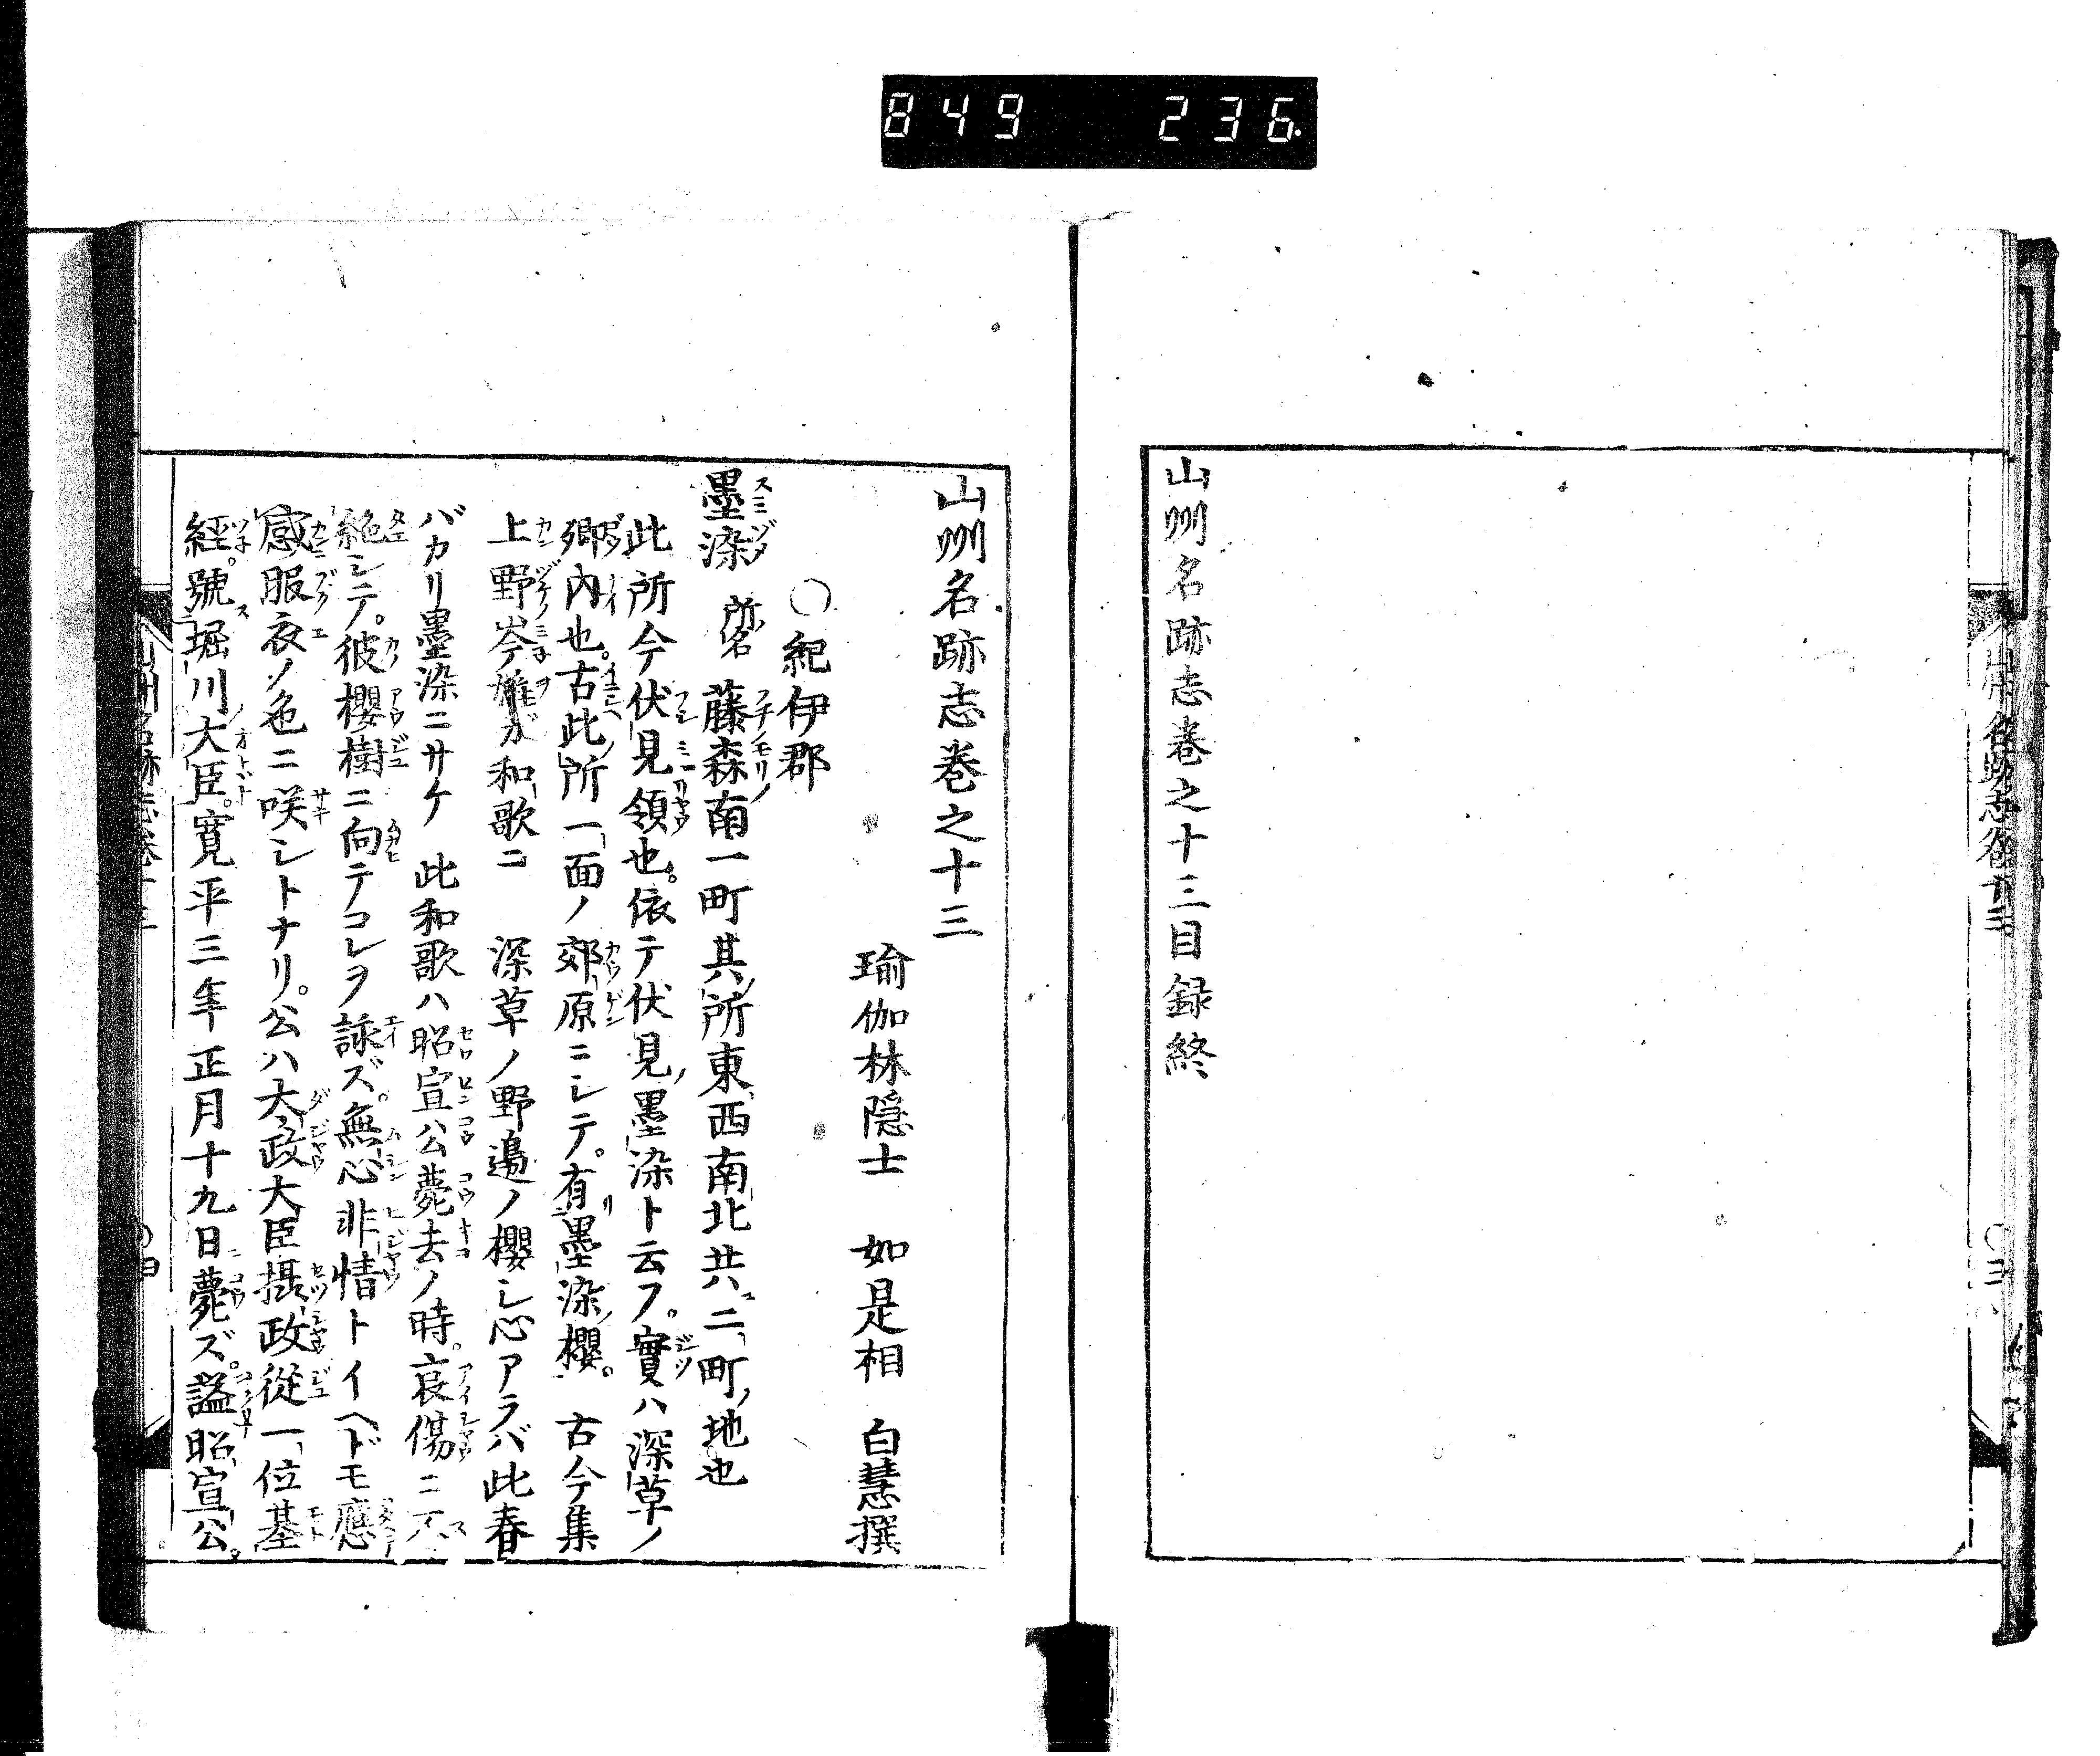 849 236
山州名跡志巻之十三目録終
山州名跡志巻之十三
瑜伽林隠士 如是相 白慧撰
○紀伊郡
墨染 所名 藤森南一町其所東西南北共二町ノ地也
此所今伏見領也。依テ伏見ノ墨染ト云フ。實ハ深草ノ
郷内也。古此所一面ノ郊原ニシテ。有墨染櫻。 古今集
上野岑雄ガ和歌ニ 深草ノ野邉ノ櫻シ心アラバ此春
バカリ墨染ニサケ 此和歌ハ昭宣公薨去ノ時。哀傷ニ不
絶シテ。彼櫻樹ニ向テコレヲ詠ズ。無心非情トイヘドモ應
感服衣ノ色ニ咲シトナリ。公ハ大政大臣摂政從一位基
經。號堀川大臣。寛平三年正月十九日薨ズ。謚昭宣公。